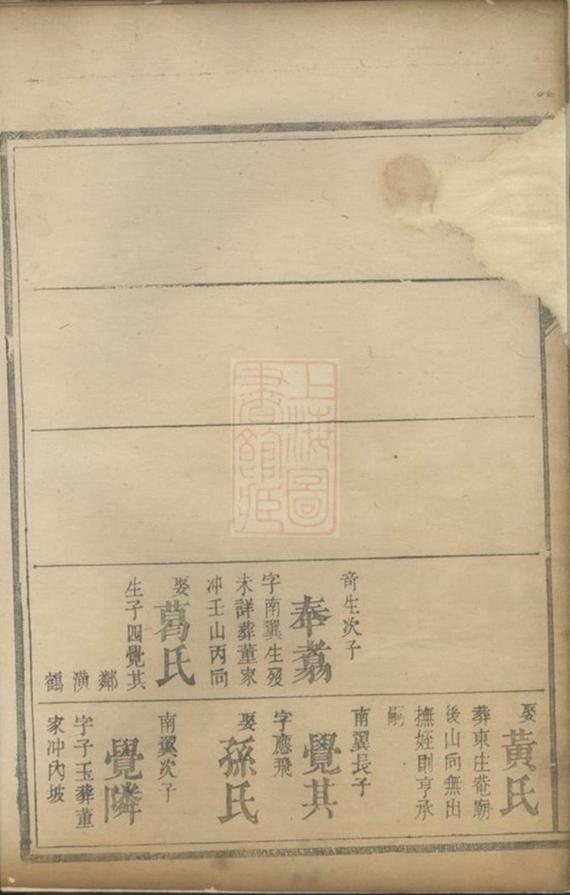 奇生次子
奉翥
字南翼生殁
未詳葬董家
冲壬山丙向
娶葛氏
生子四覺其
鄰
潢
鶴
娶黃氏
葬東庄菴廟
後山向無出
撫姪則亨承
嗣
南翼長子
覺其
字應飛
娶孫氏
南翼次子
覺隣
字子玉葬董
家冲內坡
上海圖
書館藏